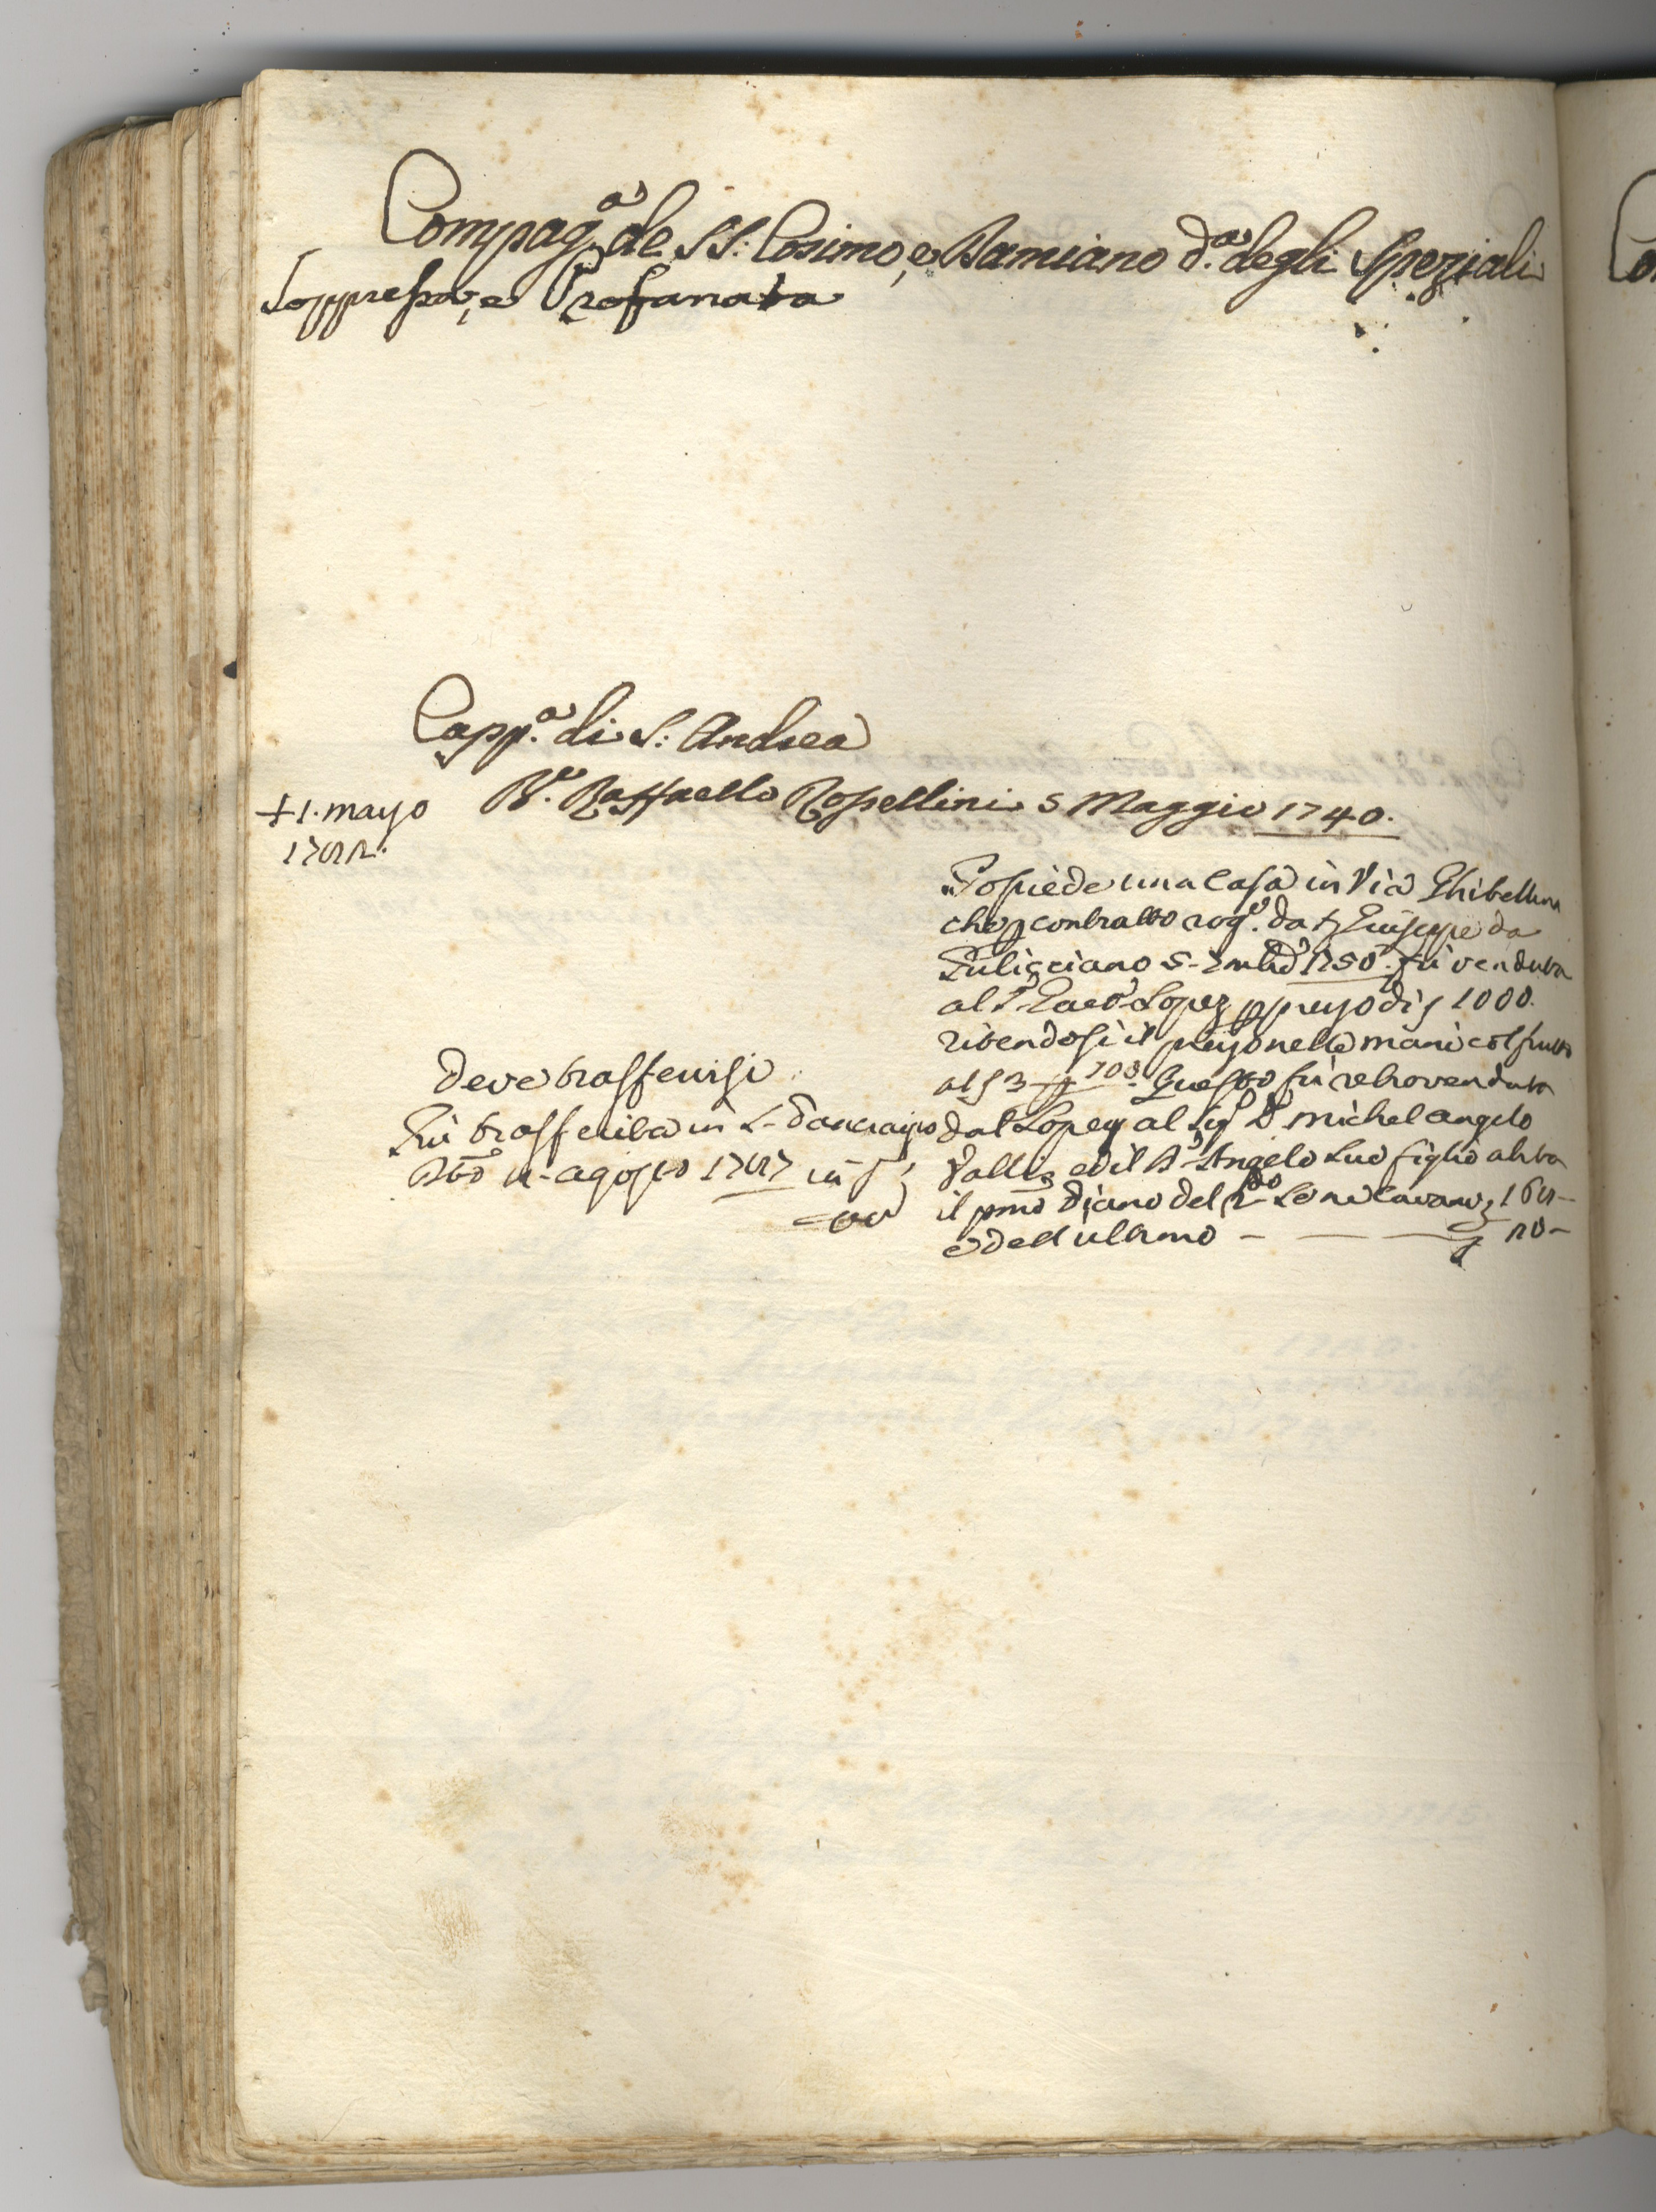 Compag.a de SS: Cosimo, e Damiano d.a degli Speziali
Soppressa, e Profanata
Capp.a di S: Andrea
P.e Raffaello Rossellini 5 Maggio 1740.
+ 1. mayo
Possiede una Casa in Via Ghibellina
che p contratto rog.o da Giuseppe da
Puliciano 5 1750. fù venduta
al Lopez p prezo di 1000.
il prezo nelle mani col frutto
al 3 p 100. Questo fù retrovenduta
dal Lopez al Sig.r D. Michelangelo
ed il Angelo suo figlio
il pmo Piano del 2.do Se ne cavano
e dell ultimo — — —
Deve trasferirsi
Fù trasferita in S. Pancrazio
agosto in